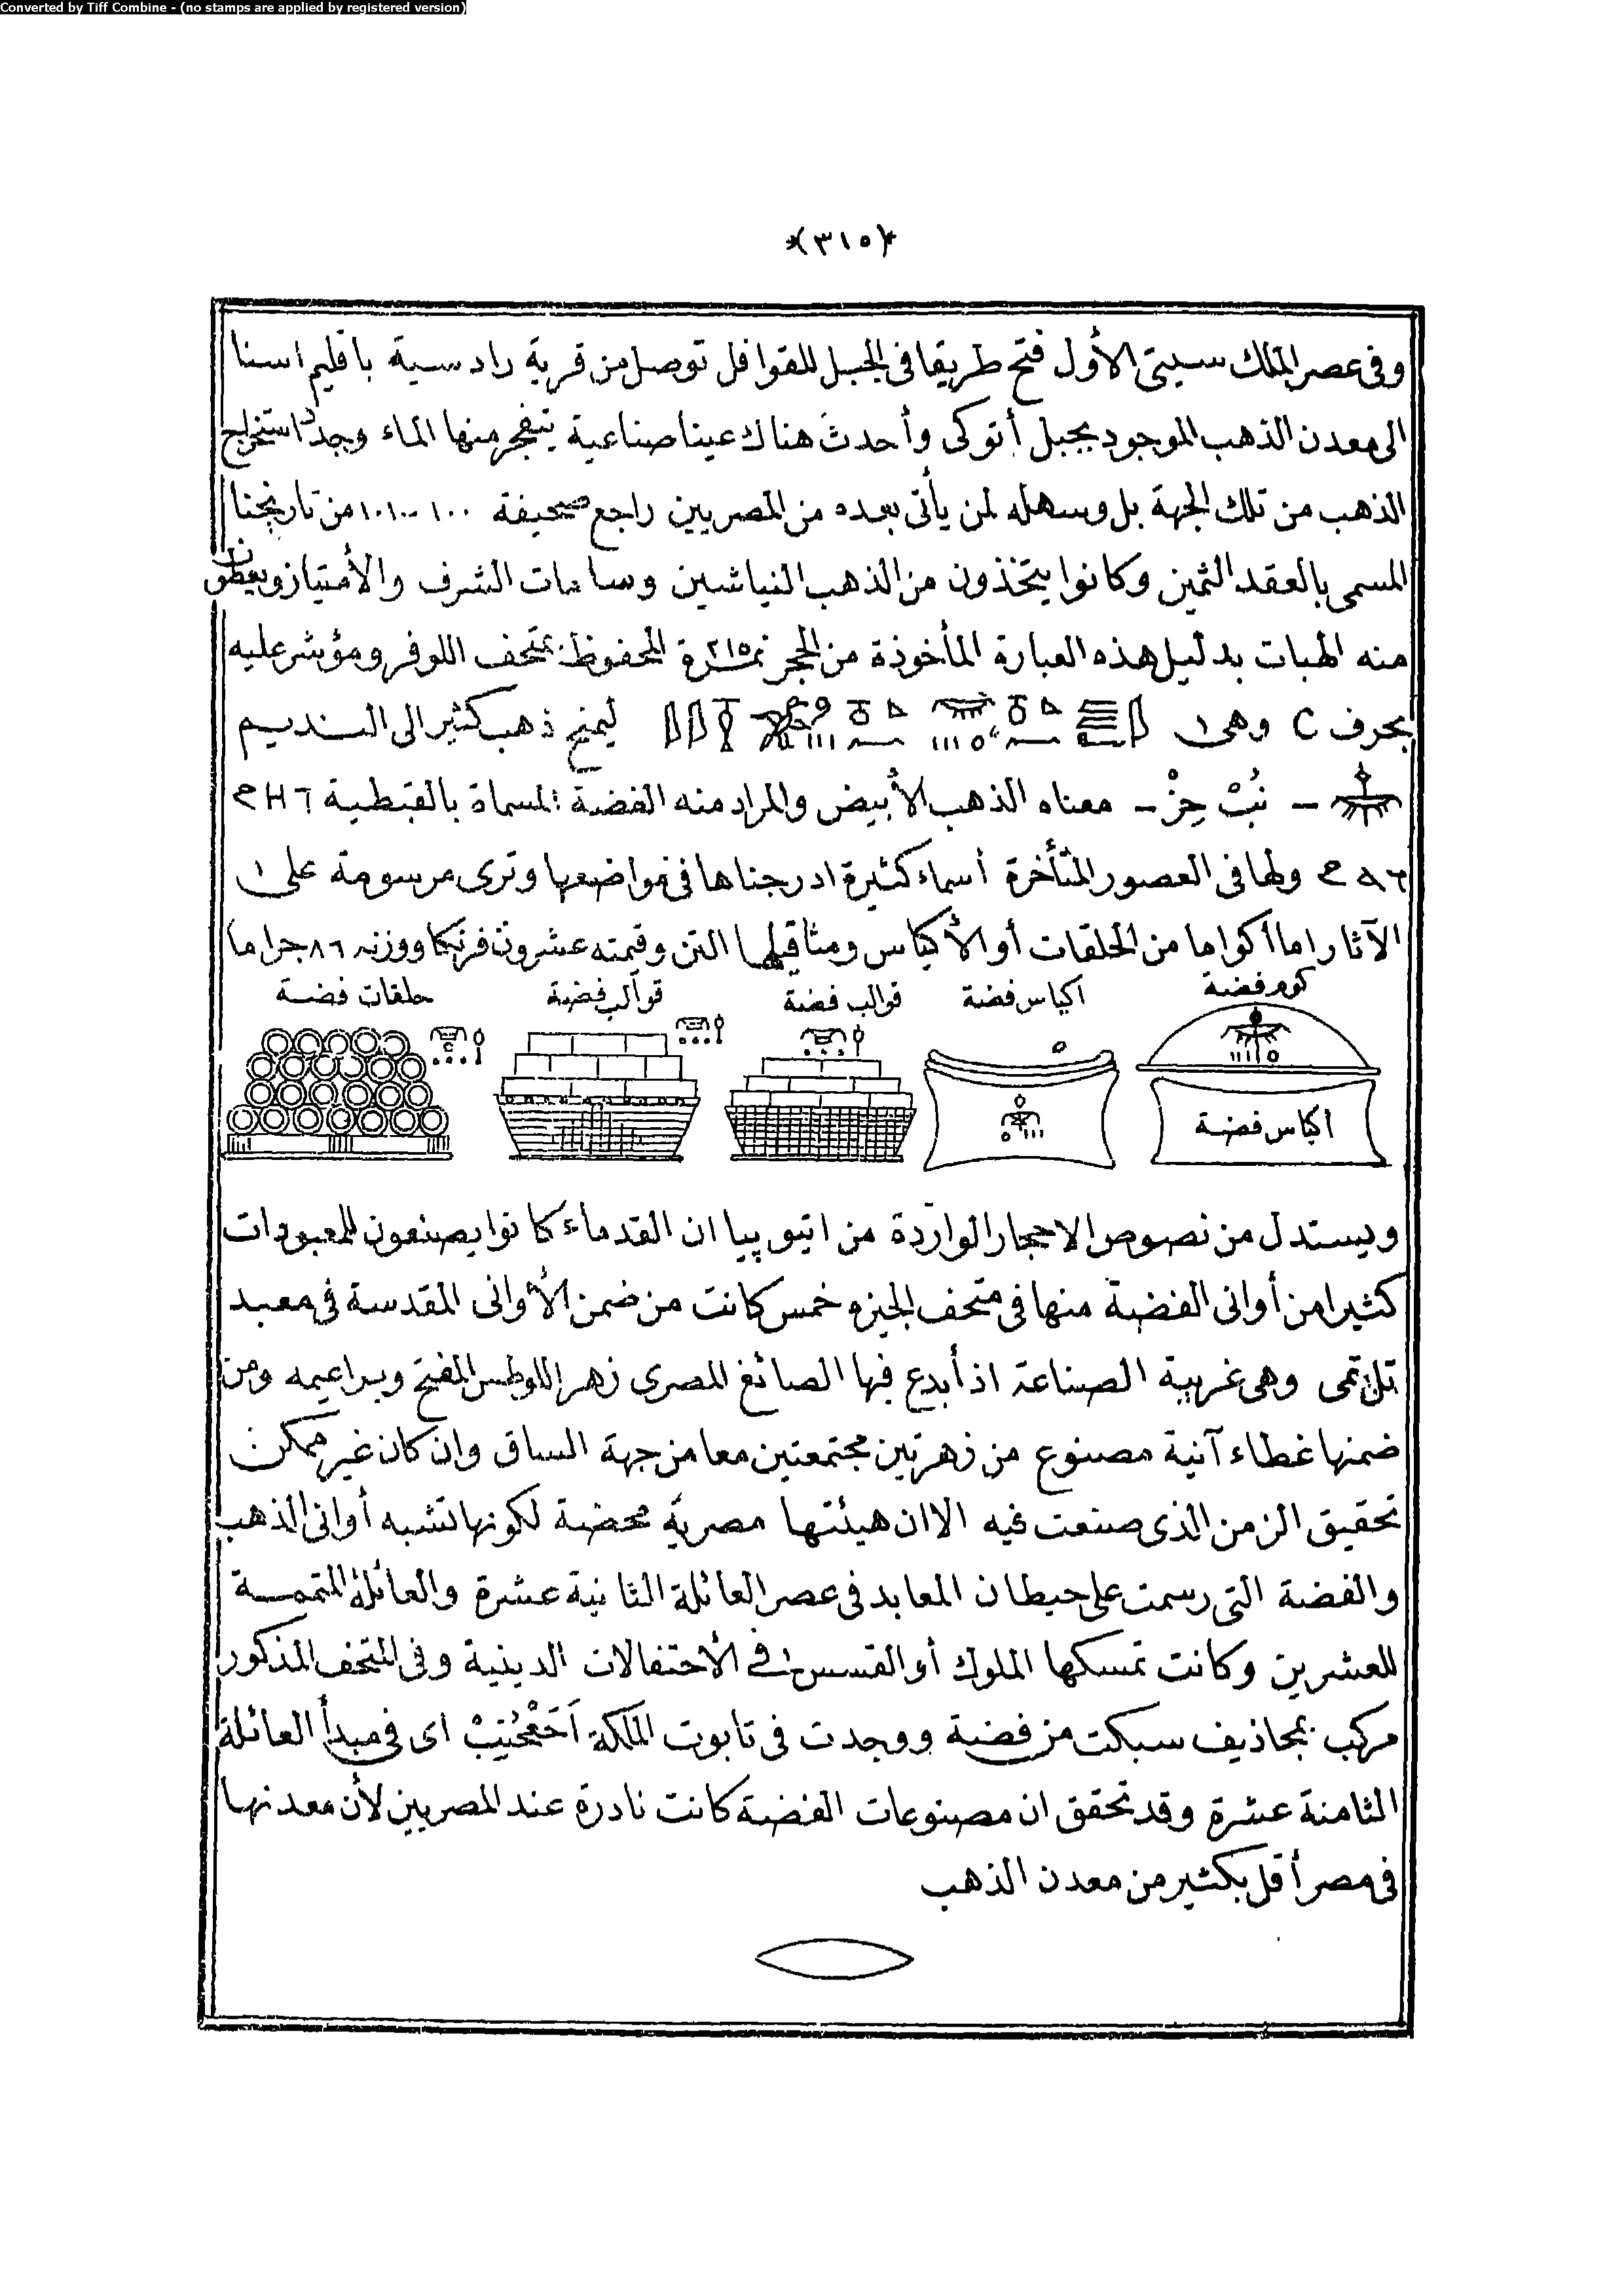 Converted by Tiff Combine - (no stamps are applied by registered version)
*(٣١٥)*
وفى عصر الملك سيتى الأول فتح طريقا فى الجبل للقوافل توصل من قرية رادسية باقليم اسنا
الى معدن الذهب الموجود بجبل أتوكى وأحدث هناك عينا صناعية يتفجر منها الماء وجدد استخراج
الذهب من تلك الجهة بل وسهله لمن يأتى بعده من المصريين راجع صحيفة ١٠٠ ـ ١٠١ من تاريخنا
المسمى بالعقد الثمين وكانوا يتخذون من الذهب النياشين وسامات الشرف والأمتياز ويعطون
منه الهبات بدليل هذه العبارة المأخوذة من الحجر نمرة ٢١٥ المحفوظ بمتحف اللوفر ومؤشر عليه
بحرف C وهى ليمنح ذهب كثير الى النديم
ـ نُبْ حِزْ ـ معناه الذهب الأبيض والمراد منه الفضة المسماة بالقبطية ϨΗΤ
ϨΑΤ ولها فى العصور المتأخرة أسماء كثيرة ادرجناها فى مواضعها وترى مرسومة على
الآثار اما أكواما من الحلقات أو الأكياس ومثاقيلها التن وقيمته عشرون فرنكا ووزنه ٨٦ جراما
كوم فضة
أكياس فضة
قوالب فضة
قوالب فضة
حلقات فضة
أكياس فضة
ويستدل من نصوص الاحجار الواردة من اتيوبيا ان القدماء كانوا يصنعون للمعبودات
كثيرا من أوانى الفضة منها فى متحف الجيزه خمس كانت من ضمن الأوانى المقدسة فى معبد
تل تمى وهى غريبة الصناعة اذ أبدع فيها الصائغ المصرى زهر اللوطس المفتح وبراعيمه ومن
ضمنها غطاء آنية مصنوع من زهرتين مجتمعتين معا من جهة الساق وان كان غير ممكن
تحقيق الزمن الذى صنعت فيه الا ان هيئتها مصرية محضة لكونها تشبه أوانى الذهب
والفضة التى رسمت على حيطان المعابد فى عصر العائلة الثانية عشرة والعائلة المتممة
للعشرين وكانت تمسكها الملوك أو القسس فى الأحتفالات الدينية وفى المتحف المذكور
مركب بمجاذيف سبكت من فضة ووجدت فى تابوت الملكة اى فى مبدأ العائلة
الثامنة عشرة وقد تحقق ان مصنوعات الفضة كانت نادرة عند المصريين لأن معدنها
فى مصر أقل بكثير من معدن الذهب